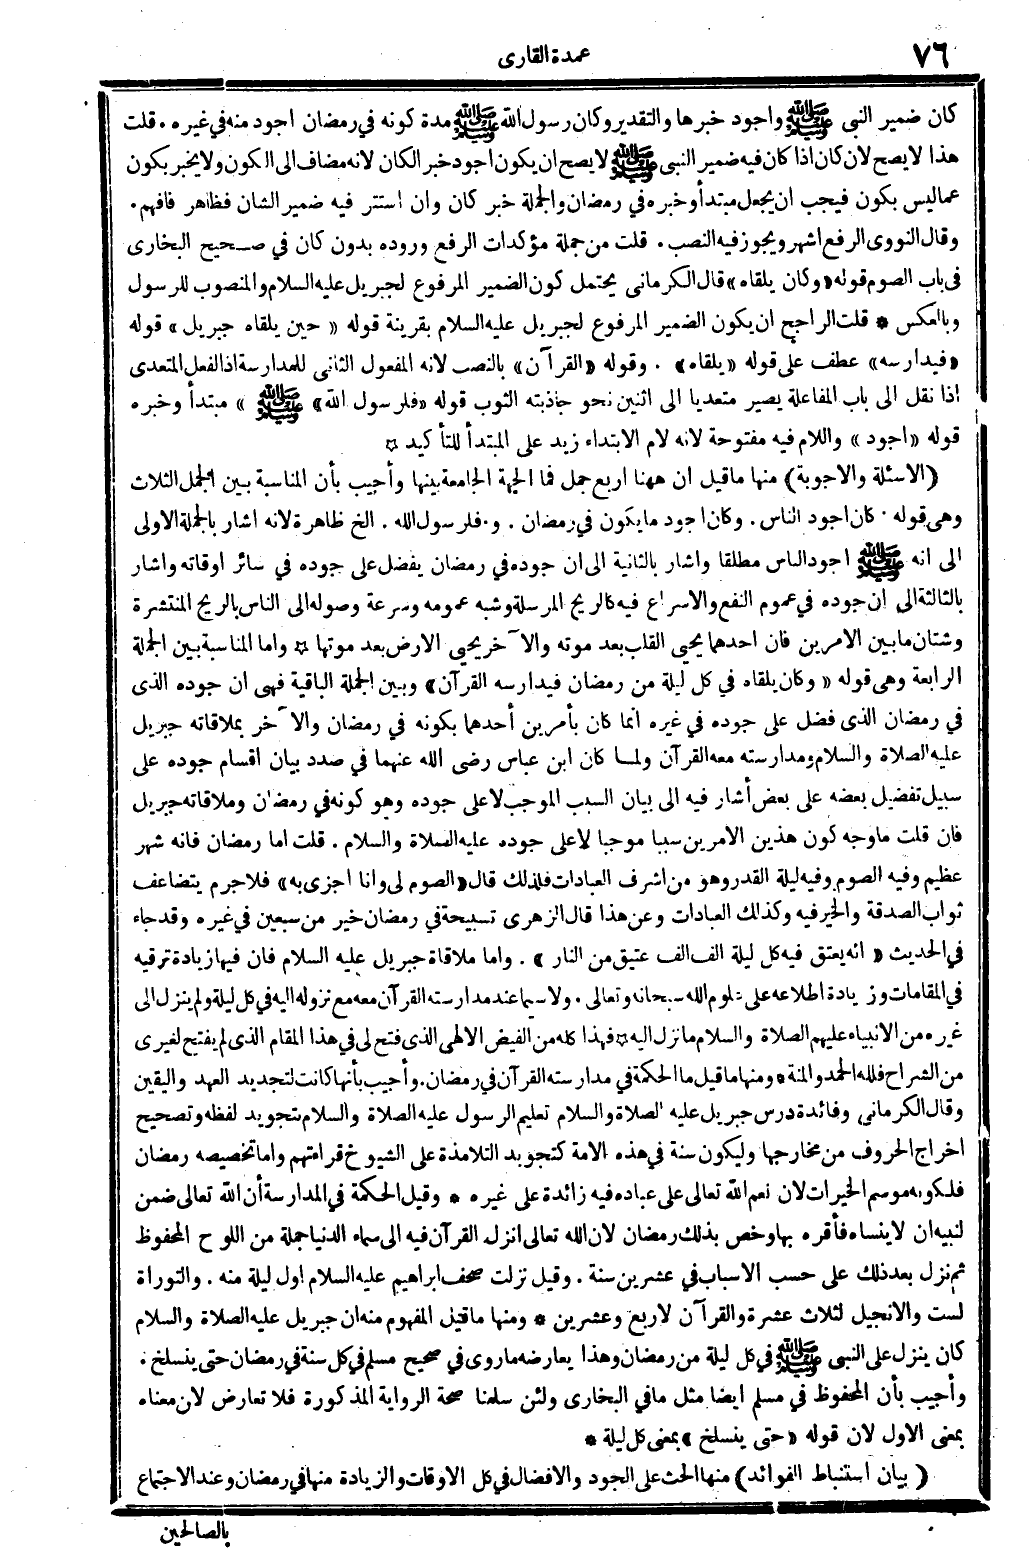 ٧٦
عمدة القارى
كان ضمير النبى ﷺ واجود خبرها والتقدير وكان رسول الله ﷺ مدة كونه في رمضان اجود منه في غيره • قلت
هذا لا يصح لان كان اذا كان فيه ضمير النبى ﷺ لا يصح ان يكون اجود خبر الكان لانه مضاف الى الكون ولا يخبر بكون
عما ليس بكون فيجب ان يجعل مبتدأ وخبره في رمضان والجملة خبر كان وان استتر فيه ضمير الشان فظاهر فافهم •
وقال النووى الرفع اشهر ويجوز فيه النصب • قلت من جملة مؤكدات الرفع وروده بدون كان في صحيح البخارى
فى باب الصوم قوله «وكان يلقاه» قال الكرمانى يحتمل كون الضمير المرفوع لجبريل عليه السلام والمنصوب للرسول
وبالعكس * قلت الراجح ان يكون الضمير المرفوع لجبريل عليه السلام بقرينة قوله « حين يلقاه جبريل » قوله
«فيدارسه» عطف على قوله «يلقاه» . وقوله «القرآن» بالنصب لانه المفعول الثانى للمدارسة اذ الفعل المتعدى
اذا نقل الى باب المفاعلة يصير متعديا الى اثنين نحو جاذبته الثوب قوله «فلرسول الله» ﷺ » مبتدأ وخبره
قوله «اجود » واللام فيه مفتوحة لانه لام الابتداء زيد على المبتدأ للتأكيد ¤
(الاسئلة والاجوبة) منها ما قيل ان ههنا اربع جمل فما الجهة الجامعة بينها وأجيب بأن المناسبة بين الجمل الثلاث
وهى قوله • كان اجود الناس . وكان اجود ما يكون في رمضان . و • فلرسول الله . الخ ظاهرة لانه اشار بالجملة الاولى
الى انه ﷺ اجود الناس مطلقا واشار بالثانية الى ان جوده في رمضان يفضل على جوده في سائر اوقاته واشار
بالثالثة الى ان جوده في عموم النفع والاسراع فيه كالريح المرسلة وشبه عمومه وسرعة وصوله الى الناس بالريح المنتشرة
وشتان ما بين الامرين فان احدهما يحيى القلب بعد موته والآخر يحيى الارض بعد موتها ¤ واما المناسبة بين الجملة
الرابعة وهى قوله « وكان يلقاه في كل ليلة من رمضان فيدارسه القرآن» وبين الجملة الباقية فهى ان جوده الذى
في رمضان الذى فضل على جوده في غيره انما كان بأمرين أحدهما بكونه في رمضان والآخر بملاقاته جبريل
عليه الصلاة والسلام ومدارسته معه القرآن ولما كان ابن عباس رضى الله عنهما في صدد بيان اقسام جوده على
سبيل تفضيل بعضه على بعض أشار فيه الى بيان السبب الموجب لاعلى جوده وهو كونه في رمضان وملاقاته جبريل
فان قلت ما وجه كون هذين الامرين سببا موجبا لاعلى جوده عليه الصلاة والسلام . قلت اما رمضان فانه شهر
عظيم وفيه الصوم وفيه ليلة القدر وهو من اشرف العبادات فلذلك قال «الصوم لى وانا اجزى به» فلا جرم يتضاعف
ثواب الصدقة والخير فيه وكذلك العبادات وعن هذا قال الزهرى تسبيحة في رمضان خير من سبعين في غيره وقد جاء
في الحديث « انه يعتق فيه كل ليلة الف الف عتيق من النار » . واما ملاقاة جبريل عليه السلام فان فيها زيادة ترقيه
في المقامات وزيادة اطلاعه على علوم الله سبحانه وتعالى . ولا سيما عند مدارسته القرآن معه مع نزوله اليه في كل ليلة ولم ينزل الى
غيره من الانبياء عليهم الصلاة والسلام ما نزل اليه ¤ فهذا كله من الفيض الالهى الذى فتح لى في هذا المقام الذى لم يفتح لغيرى
من الشراح فلله الحمد والمنة * ومنها ما قيل ما الحكمة في مدارسته القرآن في رمضان . وأجيب بأنها كانت لتجديد العهد واليقين
وقال الكرمانى وفائدة درس جبريل عليه الصلاة والسلام تعليم الرسول عليه الصلاة والسلام بتجويد لفظه وتصحيح
اخراج الحروف من مخارجها وليكون سنة في هذه الامة كتجويد التلامذة على الشيوخ قراءتهم واما تخصيصه رمضان
فلكونه موسم الخيرات لان نعم الله تعالى على عباده فيه زائدة على غيره * وقيل الحكمة في المدارسة أن الله تعالى ضمن
لنبيه ان لا ينساه فأقره بها وخص بذلك رمضان لان الله تعالى انزل القرآن فيه الى سماء الدنيا جملة من اللوح المحفوظ
ثم نزل بعد ذلك على حسب الاسباب في عشرين سنة . وقيل نزلت صحف ابراهيم عليه السلام اول ليلة منه . والتوراة
لست والانجيل لثلاث عشرة والقرآن لاربع وعشرين * ومنها ما قيل المفهوم منه ان جبريل عليه الصلاة والسلام
كان ينزل على النبى ﷺ في كل ليلة من رمضان وهذا يعارضه ما روى في صحيح مسلم في كل سنة في رمضان حتى ينسلخ .
وأجيب بأن المحفوظ في مسلم ايضا مثل ما في البخارى ولئن سلمنا صحة الرواية المذكورة فلا تعارض لان معناه
بمعنى الاول لان قوله «حتى ينسلخ » بمعنى كل ليلة *
( بيان استنباط الفوائد ) منها الحث على الجود والافضال في كل الاوقات والزيادة منها في رمضان وعند الاجتماع
بالصالحين